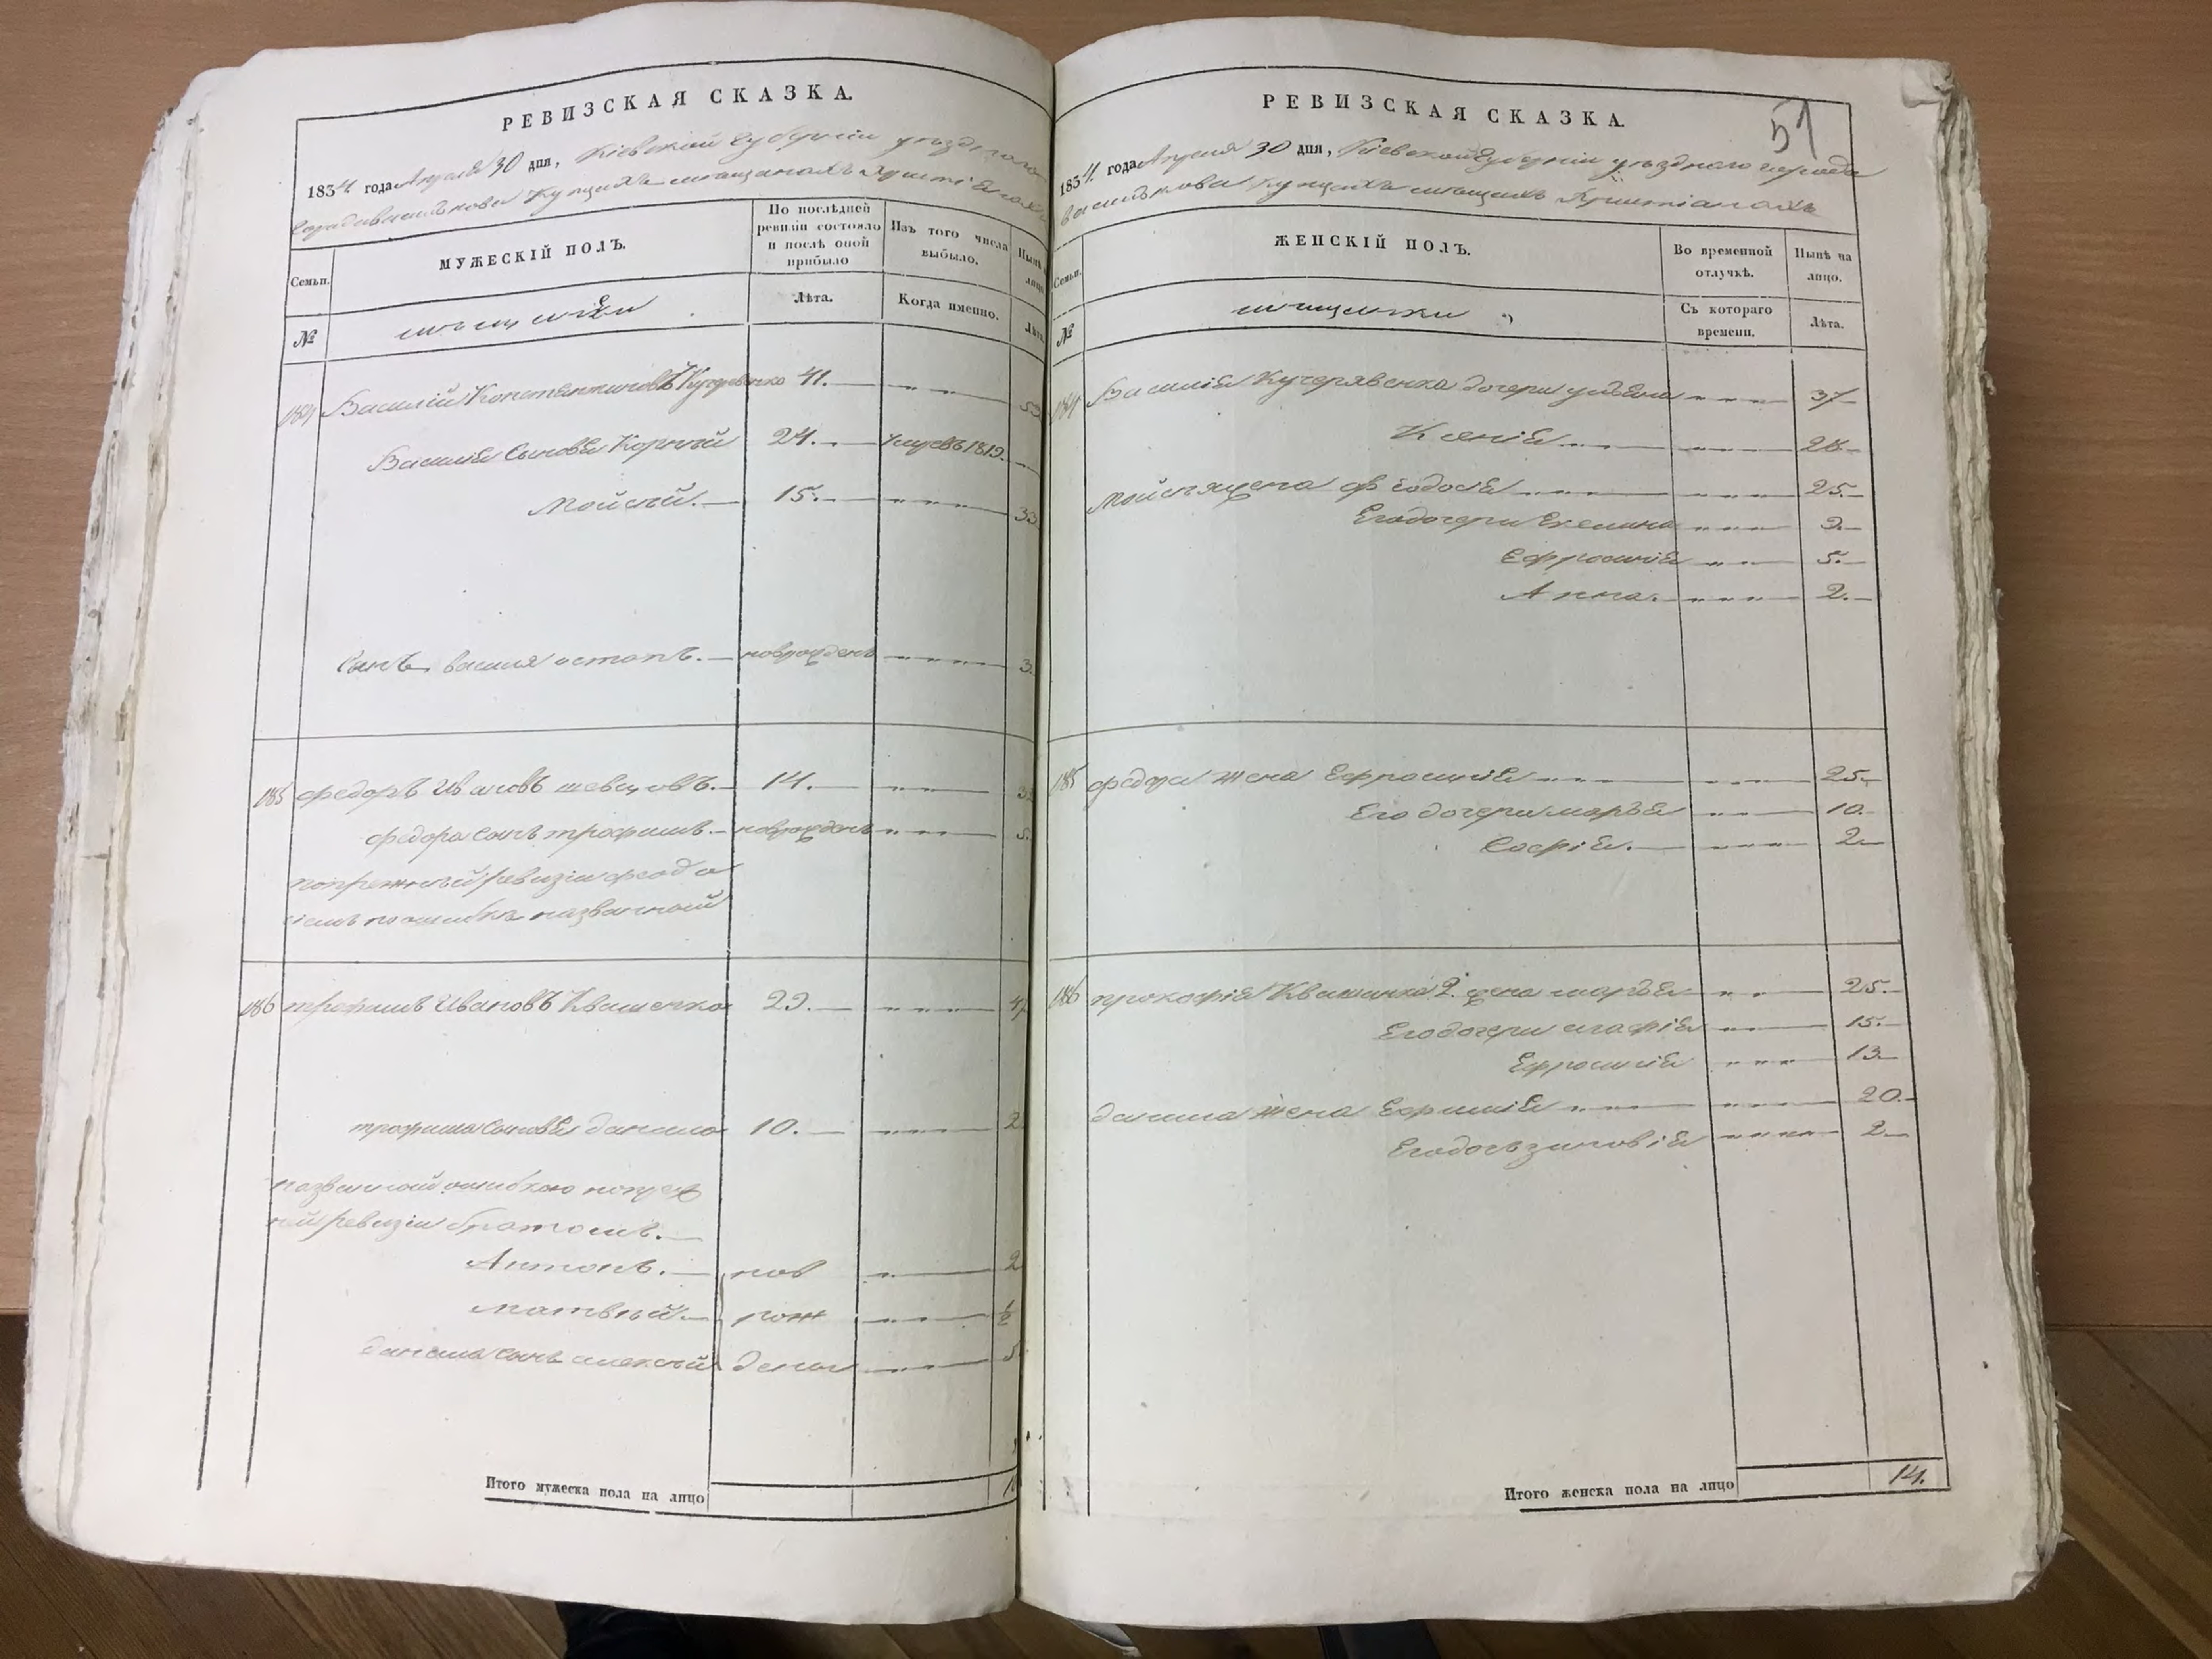 РЕВИЗСКАЯ СКАЗКА.
1834 года Апреля 30 дня, Кіевской Губерніи уезднаго
города василькова Купцахъ мещанахъ Христіанахъ
Семьи.
МУЖЕСКІЙ ПОЛЪ.
По послѣдней ревизіи состояло и послѣ оной прибыло
Изъ того числа выбыло.
Нынѣ
№
мещане
Лѣта.
Когда именно.
Лѣта.
184 Василій Константиновъ Кучеревенко 41.
Василія Сыновья Корнѣй 24. умре въ 1819.
Мойсей. 15. 33
Сынъ василя остапъ. новорожденъ 3.
185 федоръ Ивановъ шевцовъ. 14.
федора сынъ трофимъ. новорожденъ 5.
попрежней ревизіи феодо
сіемъ по ошибке названный
186 трофимъ Ивановъ Квашенко 29.
трофима сыновья данило 10.
названный ошибкою попреж
ней ревизіи братомъ.
Антонъ. нов 2
матвѣй. рож ½
данила сынъ алексѣй дены 5
Итого мужеска пола на лицо
РЕВИЗСКАЯ СКАЗКА.
51
1834 года Апреля 30 дня, Кіевской Губерніи уезднаго города
василькова купцахъ мещанехъ Христіанахъ
Семьи.
ЖЕНСКІЙ ПОЛЪ.
Во временной отлучкѣ.
Нынѣ на лицо.
№
мещанки
Съ котораго времени.
Лѣта.
184 Василія Кучерявенка дочери 37
Ксенія 28
Мойсея жена Феодосія 25.
Его дочери 9.
Ефросинія 5.
Анна. 2.
185 федора жена Ефросинія 25.
Его дочери марья 10.
Софія. 2
186 прокофія Квашенка 2. жена марья 25.
Его дочери агафія 15.
Ефросинія 13
данила жена Ефимія 20.
Его дочь зиновія 2
Итого женска пола на лицо 14.